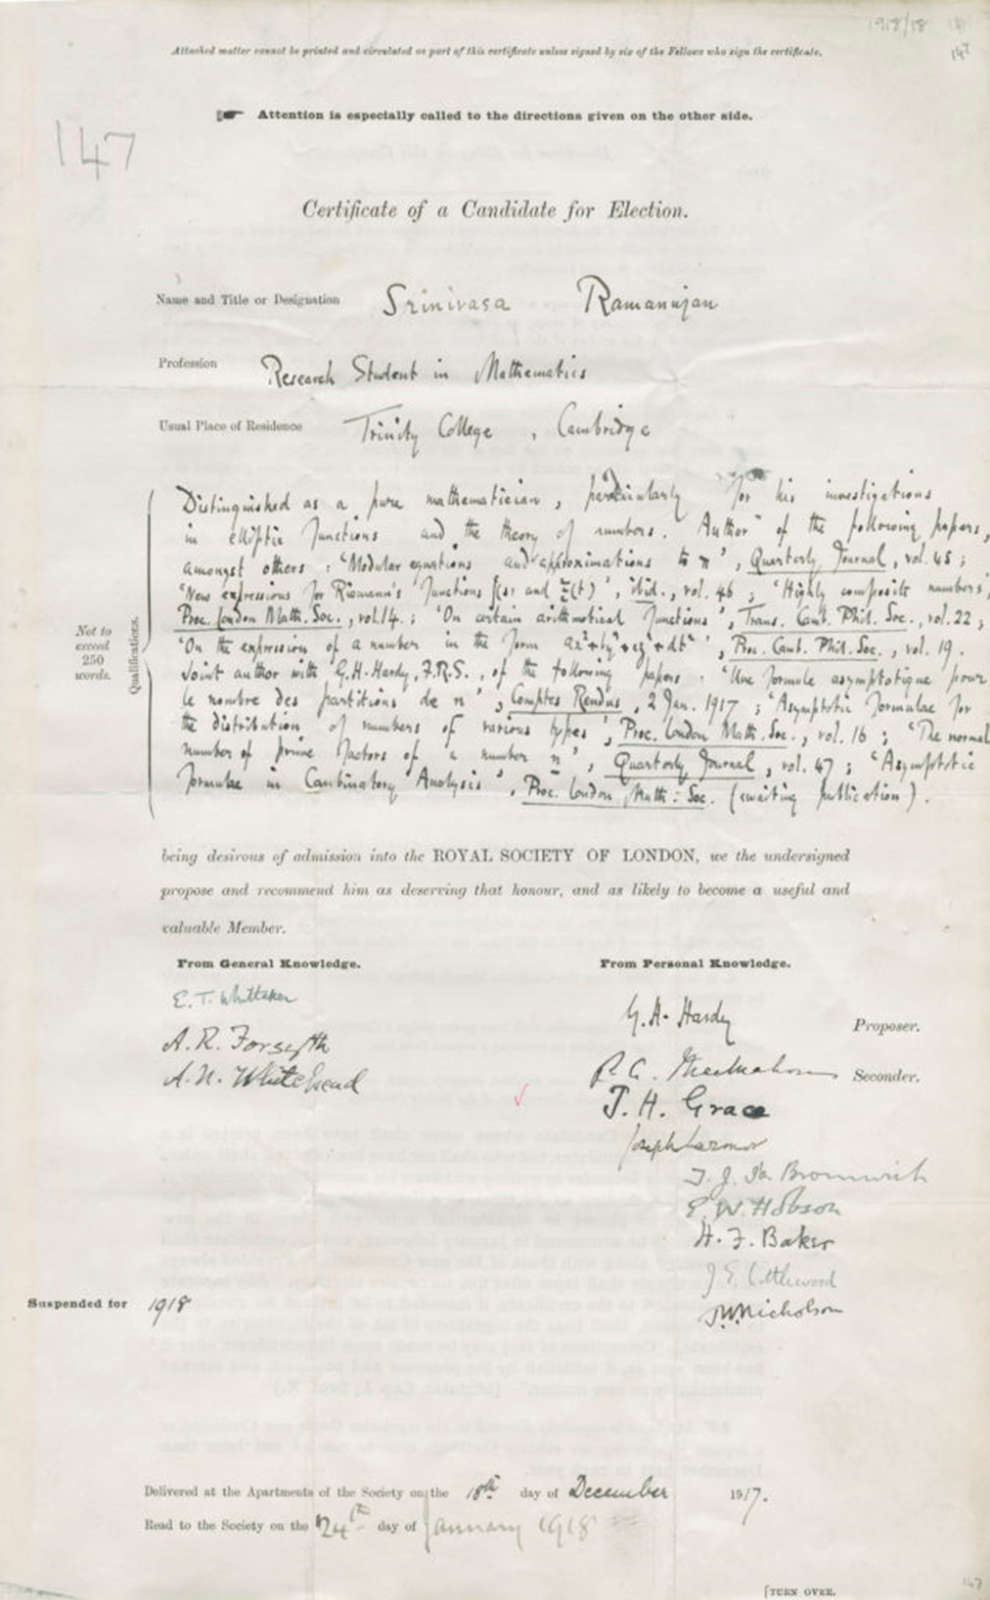 1918/18
147
Attached matter cannot be printed and circulated as part of this certificate unless signed by six of the Fellows who sign the certificate.
Attention is especially called to the directions given on the other side.
147
Certificate of a Candidate for Election.
Name and Title or Designation Srinivasa Ramanujan
Profession Research Student in Mathematics
Usual Place of Residence Trinity College, Cambridge
Not to exceed 250 words.
Qualifications.
Distinguished as a pure mathematician, particularly for his investigations
in elliptic functions and the theory of numbers. Author of the following papers,
amongst others: 'Modular equations and approximations to π', Quarterly Journal, vol. 45;
'New expressions for Riemann's functions ξ(s) and Ξ(t)', ibid., vol. 46; 'Highly composite numbers',
Proc. London Math. Soc., vol. 14.; 'On certain arithmetical functions', Trans. Camb. Phil. Soc., vol. 22;
'On the expression of a number in the form ax²+by²+cz²+dt²', Proc. Camb. Phil. Soc., vol. 19.
Joint author with G.H. Hardy, F.R.S., of the following papers: 'Une formule asymptotique pour
le nombre des partitions de n', Comptes Rendus, 2 Jan. 1917; 'Asymptotic formulae for
the distribution of numbers of various types', Proc. London Math. Soc., vol. 16; 'The normal
number of prime factors of a number n', Quarterly Journal, vol. 47; 'Asymptotic
formulae in Combinatory Analysis', Proc. London Math. Soc. (awaiting publication).
being desirous of admission into the ROYAL SOCIETY OF LONDON, we the undersigned
propose and recommend him as deserving that honour, and as likely to become a useful and
valuable Member.
From General Knowledge.
E. T. Whittaker
A. R. Forsyth
A. N. Whitehead
From Personal Knowledge.
G. H. Hardy Proposer.
P. A. MacMahon Seconder.
J. H. Grace
Joseph Larmor
T. J. I'a Bromwich
E. W. Hobson
H. F. Baker
J. E. Littlewood
J. W. Nicholson
Suspended for 1918
Delivered at the Apartments of the Society on the 18th day of December 1917.
Read to the Society on the 24th day of January 1918
[TURN OVER.
147